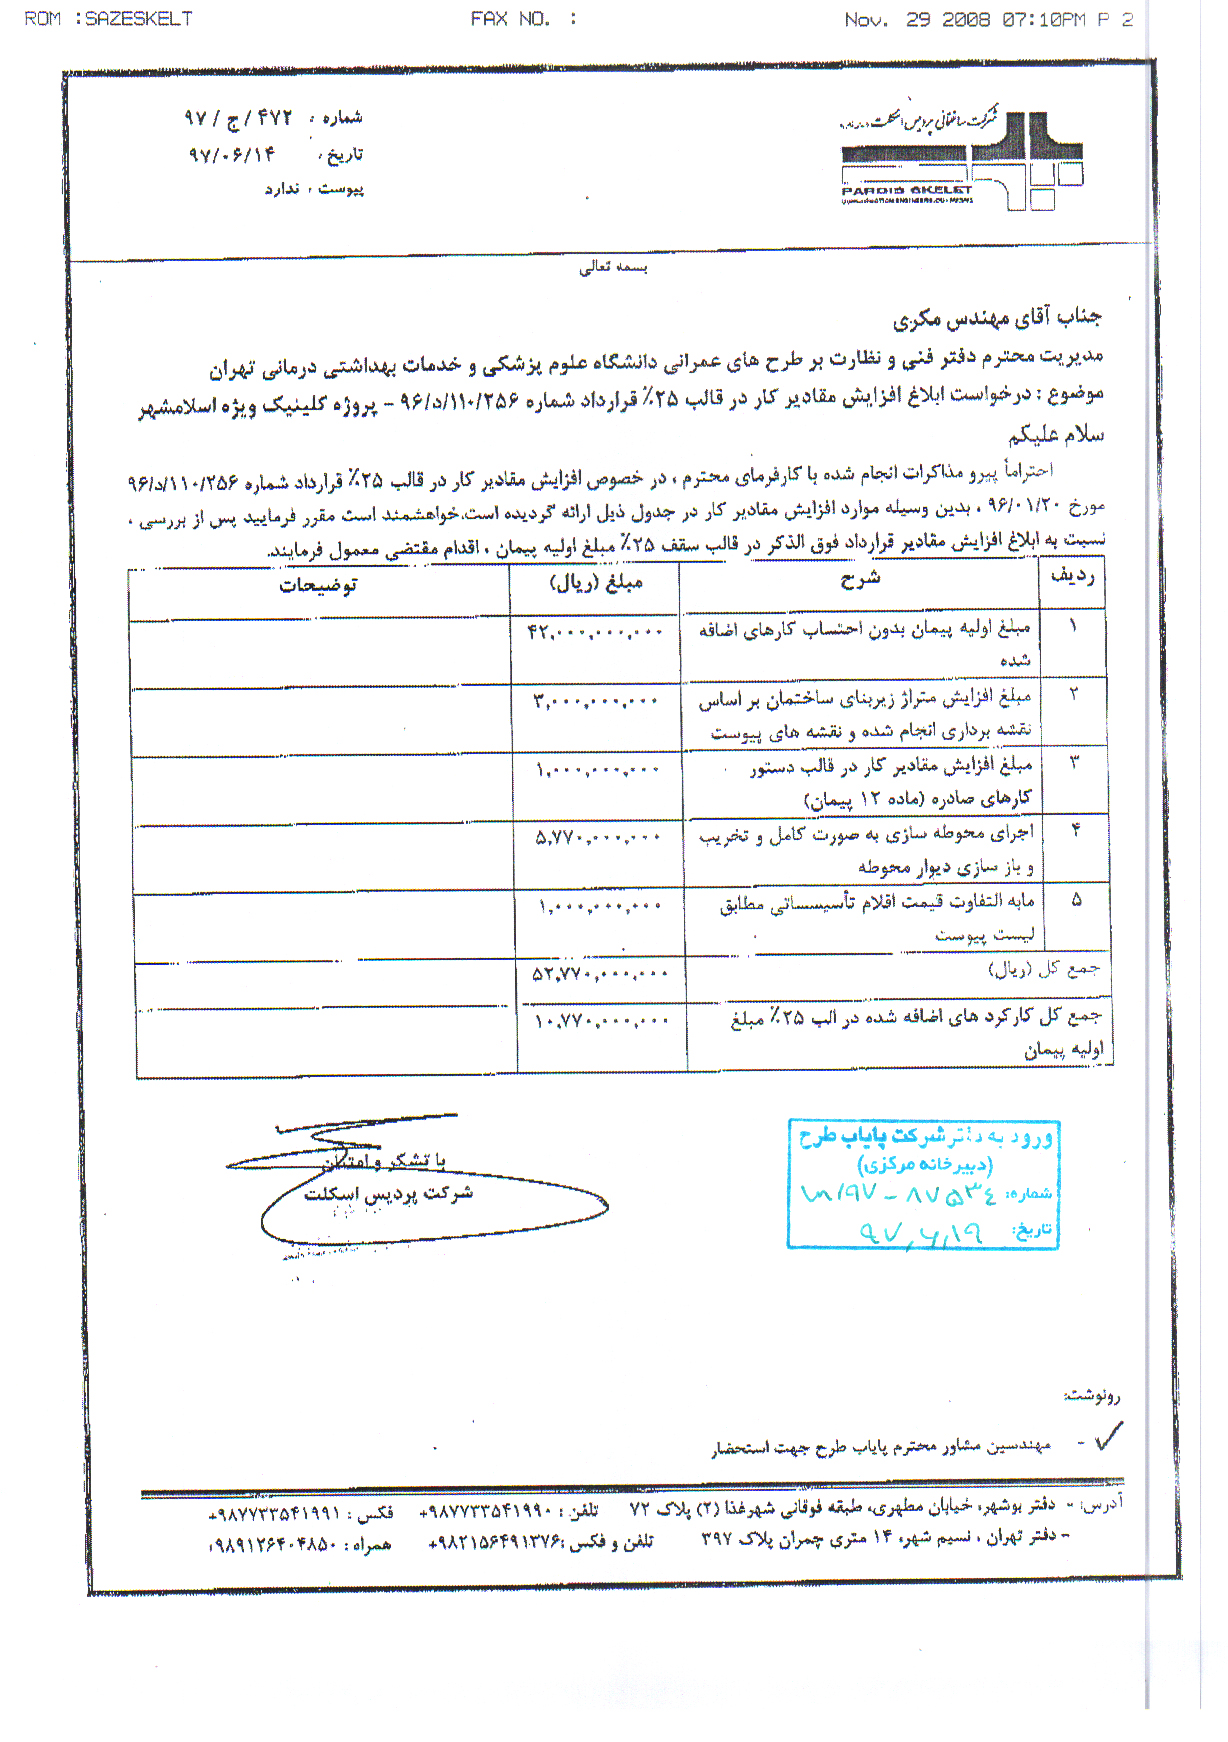 ROM :SAZESKELT FAX NO. : Nov. 29 2008 07:10PM P 2
شرکت ساختمانی پردیس اسکلت
PARDIS SKELET
شماره : ۴۷۲ / ج / ۹۷
تاریخ : ۹۷/۰۶/۱۴
پیوست : ندارد
بسمه تعالی
جناب آقای مهندس مکری
مدیریت محترم دفتر فنی و نظارت بر طرح های عمرانی دانشگاه علوم پزشکی و خدمات بهداشتی درمانی تهران
موضوع : درخواست ابلاغ افزایش مقادیر کار در قالب ۲۵٪ قرارداد شماره ۹۶/د/۱۱۰/۲۵۶ - پروژه کلینیک ویژه اسلامشهر
سلام علیکم
احتراماً پیرو مذاکرات انجام شده با کارفرمای محترم ، در خصوص افزایش مقادیر کار در قالب ۲۵٪ قرارداد شماره ۹۶/د/۱۱۰/۲۵۶
مورخ ۹۶/۰۱/۲۰ ، بدین وسیله موارد افزایش مقادیر کار در جدول ذیل ارائه گردیده است.خواهشمند است مقرر فرمایید پس از بررسی ،
نسبت به ابلاغ افزایش مقادیر قرارداد فوق الذکر در قالب سقف ۲۵٪ مبلغ اولیه پیمان ، اقدام مقتضی معمول فرمایند.
ردیف شرح مبلغ (ریال) توضیحات
۱ مبلغ اولیه پیمان بدون احتساب کارهای اضافه ۴۲,۰۰۰,۰۰۰,۰۰۰
شده
۲ مبلغ افزایش متراژ زیربنای ساختمان بر اساس ۳,۰۰۰,۰۰۰,۰۰۰
نقشه برداری انجام شده و نقشه های پیوست
۳ مبلغ افزایش مقادیر کار در قالب دستور ۱,۰۰۰,۰۰۰,۰۰۰
کارهای صادره (ماده ۱۲ پیمان)
۴ اجرای محوطه سازی به صورت کامل و تخریب ۵,۷۷۰,۰۰۰,۰۰۰
و باز سازی دیوار محوطه
۵ مابه التفاوت قیمت اقلام تأسیسساتی مطابق ۱,۰۰۰,۰۰۰,۰۰۰
لیست پیوست
جمع کل (ریال) ۵۲,۷۷۰,۰۰۰,۰۰۰
جمع کل کارکرد های اضافه شده در الب ۲۵٪ مبلغ ۱۰,۷۷۰,۰۰۰,۰۰۰
اولیه پیمان
با تشکر و امتنان
شرکت پردیس اسکلت
ورود به دفتر شرکت پایاب طرح
(دبیرخانه مرکزی)
شماره: ۸۷۵۳۴ -
تاریخ: ۹۷,۶,۱۹
رونوشت:
- مهندسین مشاور محترم پایاب طرح جهت استحضار
آدرس: - دفتر بوشهر، خیابان مطهری، طبقه فوقانی شهرغذا (۲) پلاک ۷۲ تلفن : ۹۸۷۷۳۳۵۴۱۹۹۰+ فکس : ۹۸۷۷۳۳۵۴۱۹۹۱+
- دفتر تهران ، نسیم شهر، ۱۴ متری چمران پلاک ۳۹۷ تلفن و فکس :۹۸۲۱۵۶۴۹۱۳۷۶+ همراه : ۹۸۹۱۲۶۴۰۴۸۵۰